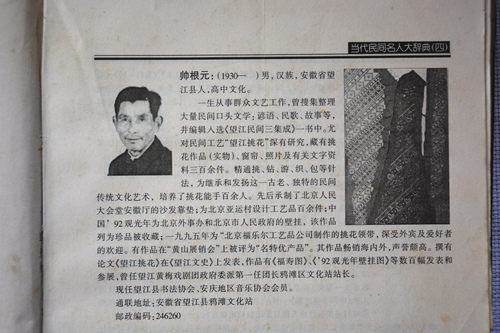 当代民间名人大辞典(四)
帅根元:(1930— )男,汉族,安徽省望
江县人,高中文化。
一生从事群众文艺工作,曾搜集整理
大量民间口头文学:谚语、民歌、故事等,
并编辑入选《望江民间三集成》一书中。尤
对民间工艺"望江挑花"深有研究,藏有挑
花作品(实物)、窗帘、照片及有关文字资
料三百余件。精通挑、钻、游、织、包等针
法,为继承和发扬这一古老、独特的民间
传统文化艺术,培养了挑花能手百余人。先后承制了北京人民
大会堂安徽厅的沙发靠垫;为北京亚运村设计工艺品百余件;中
国'92观光年为北京外事办和北京市人民政府的壁挂,该作品
列为珍品被收藏;一九九五年为"北京福乐尔工艺品公司制作的挑花领带,深受外宾及爱好者
的欢迎。有作品在"黄山展销会"上被评为"名特优产品"。其作品畅销海内外,声誉颇高。撰有
论文《望江挑花》在《望江文史》上发表,作品有《福寿图》、《'92观光年壁挂图》等数百幅发表和
参展,曾任望江黄梅戏剧团政府委派第一任团长鸦滩区文化站站长。
现任望江县书法协会、安庆地区音乐协会会员。
通联地址:安徽省望江县鸦滩文化站
邮政编码:246260